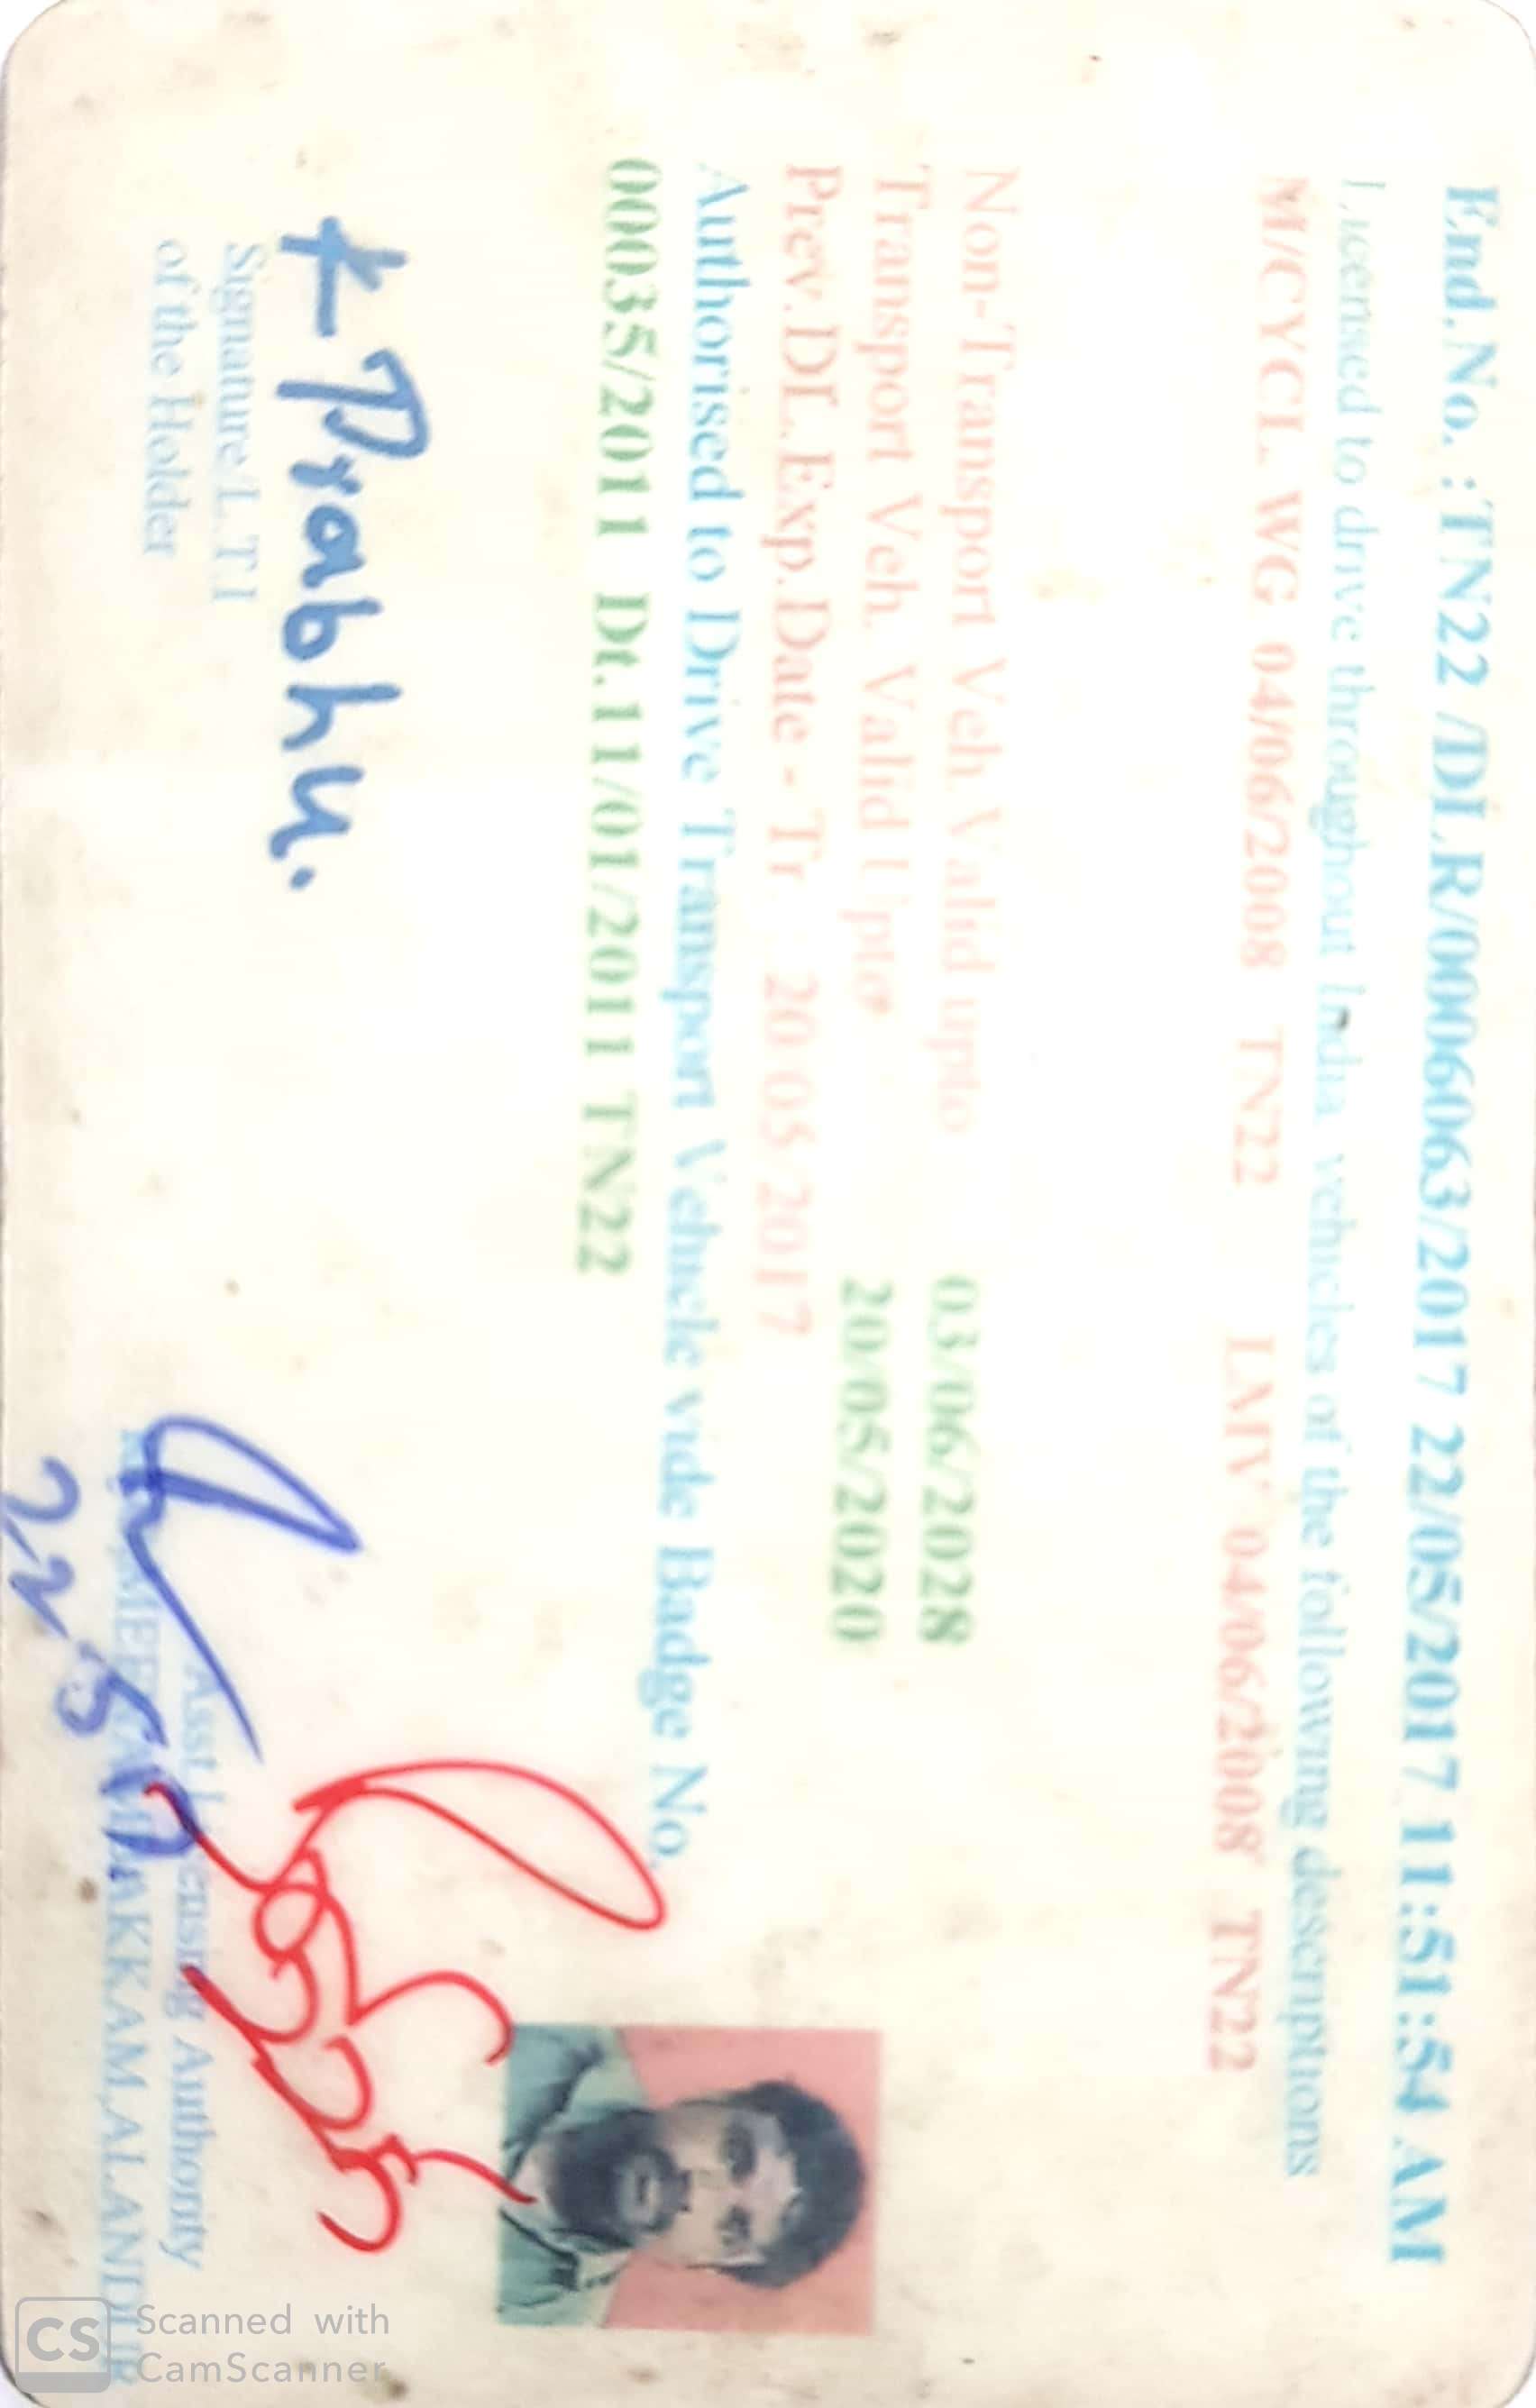 End.No. :TN22 /DLR/0006063/2017 22/05/2017 11:51:54 AM
Licensed to drive throughout India vehicles of the following descriptions
M/CYCL. WG 04/06/2008 TN22 LMV 04/06/2008 TN22
Non-Transport Veh Valid upto 03/06/2028
Transport Veh. Valid Upto 20/05/2020
Prev.DL.Exp.Date - Tr 20 05 2017
Authorised to Drive Transport Vehicle vide Badge No.
00035/2011 Dt.11/01/2011 TN22
Prabhu.
Signature/L.T.I
of the Holder
Asst Licensing Authority
22 5
Scanned with
CamScanner
CS